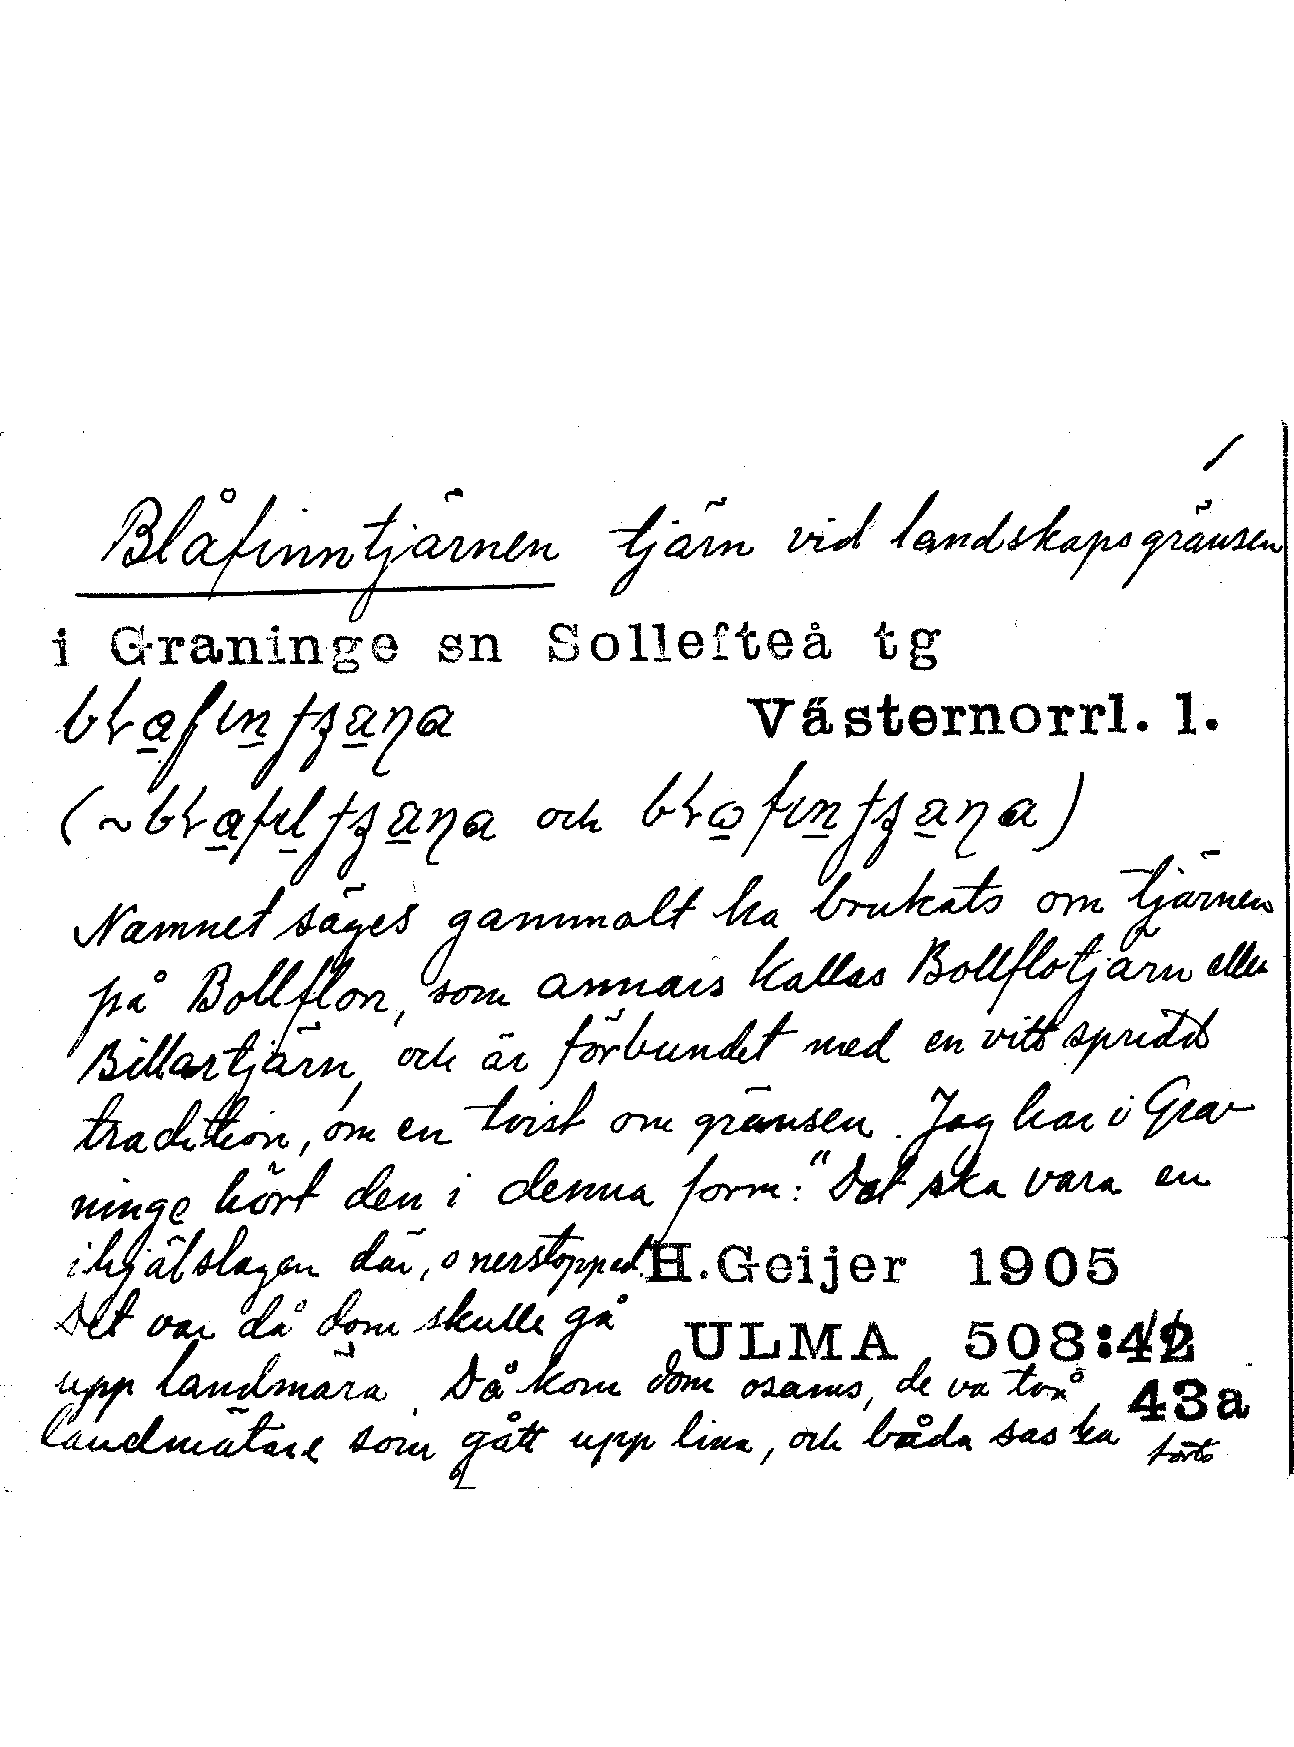 Blåfinntjärnen tjärn vid landskapsgränsen
i Graninge sn Sollefteå tg
Västernorrl. l.
och
Namnet säges gammalt ha brukats om tjärnen
på Bollflon, som annars kallas Bollflotjärn eller
Billartjärn, och är förbundet med en vitt spridd
tradition, om en tvist om gränsen. Jag har i Gra-
ninge hört den i denna form: "Det ska vara en
ihjälslagen där, o nerstoppad. H. Geijer 1905
Det var då dom skulle gå ULMA 508:42
upp landmära. Då kom dom osams, de va två 43a
landmätare som gått upp lina, och båda sas ha
forts